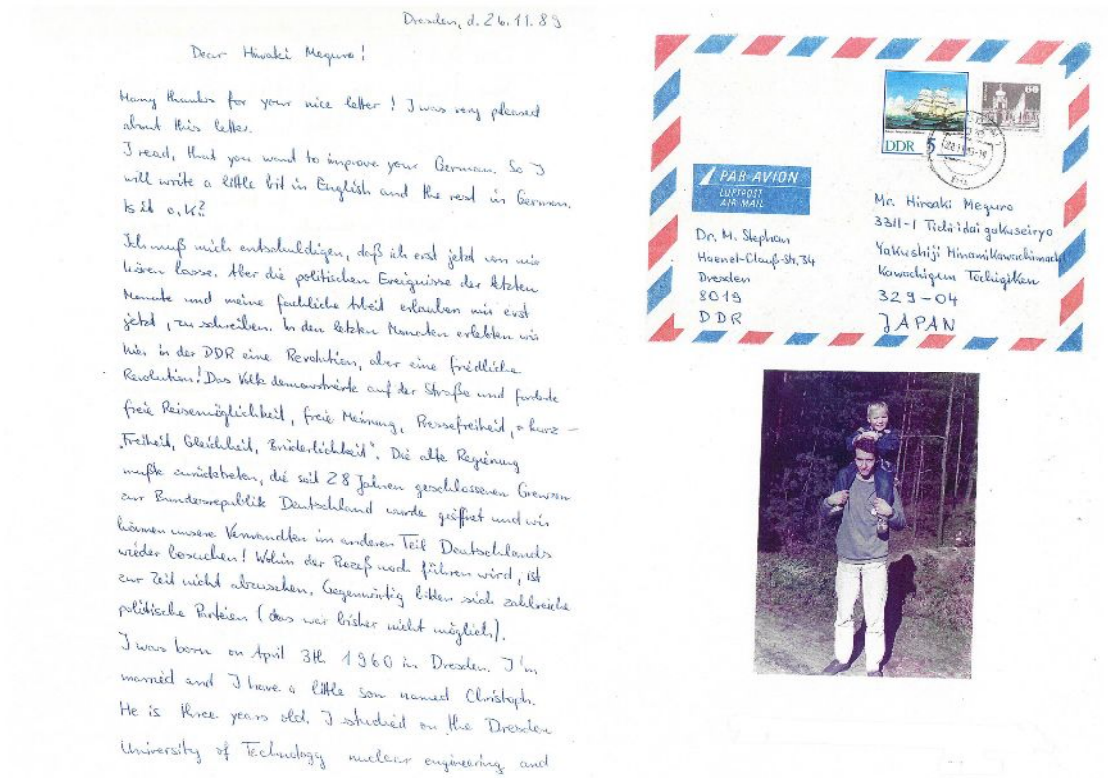 Dresden, d. 26.11.89
Dear Hiroaki Meguro!
Many thanks for your nice letter! I was very pleased
about this letter.
I read, that you want to improve your German. So I
will write a little bit in English and the rest in German.
Is it o.K.?
Ich muß mich entschuldigen, daß ich erst jetzt von mir
hören lasse. Aber die politischen Ereignisse der letzten
Monate und meine fachliche Arbeit erlauben mir erst
jetzt, zu schreiben. In den letzten Monaten erlebten wir
hier in der DDR eine Revolution, aber eine friedliche
Revolution! Das Volk demonstrierte auf der Straße und forderte
freie Reisemöglichkeit, freie Meinung, Pressefreiheit, kurz –
„Freiheit, Gleichheit, Brüderlichkeit". Die alte Regierung
mußte zurücktreten, die seit 28 Jahren geschlossenen Grenzen
zur Bundesrepublik Deutschland wurde geöffnet und wir
können unsere Verwandten im anderen Teil Deutschlands
wieder besuchen! Wohin der Prozeß noch führen wird, ist
zur Zeit nicht abzusehen. Gegenwärtig bilden sich zahlreiche
politische Parteien (das war bisher nicht möglich).
I was born on April 3th 1960 in Dresden. I'm
married and I have a little son named Christoph.
He is three years old. I studied on the Dresden
University of Technology nuclear engineering and
DDR 5
60
PAR AVION
LUFTPOST
AIR MAIL
Dr. M. Stephan
Haenel-Clauß-Str. 34
Dresden
8019
DDR
Mr. Hiroaki Meguro
3311-1 Tidiidai gakuseiryo
Yakushiji Minamikawachimachi
Kawachigun Tochigiken
329-04
JAPAN